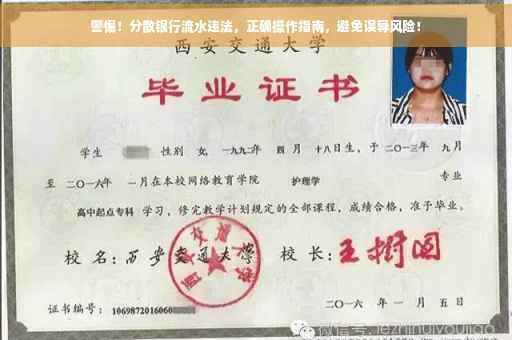 警惕！分散银行流水违法，正确操作指南，避免误导风险！
西安交通大学
毕业证书
学生 性别 女, 一九九二年 四月 十八日生，于 二〇一三年 九月
至 二〇一六年 一月在本校网络教育学院 护理学 专业
高中起点专科 学习，修完教学计划规定的全部课程，成绩合格，准予毕业。
校 名：西安交通大学 校 长：王树国
西安交通大学
证书编号：1069872016060
二〇一六 年 一 月 五 日
微信号: jezhihuiyoujiao